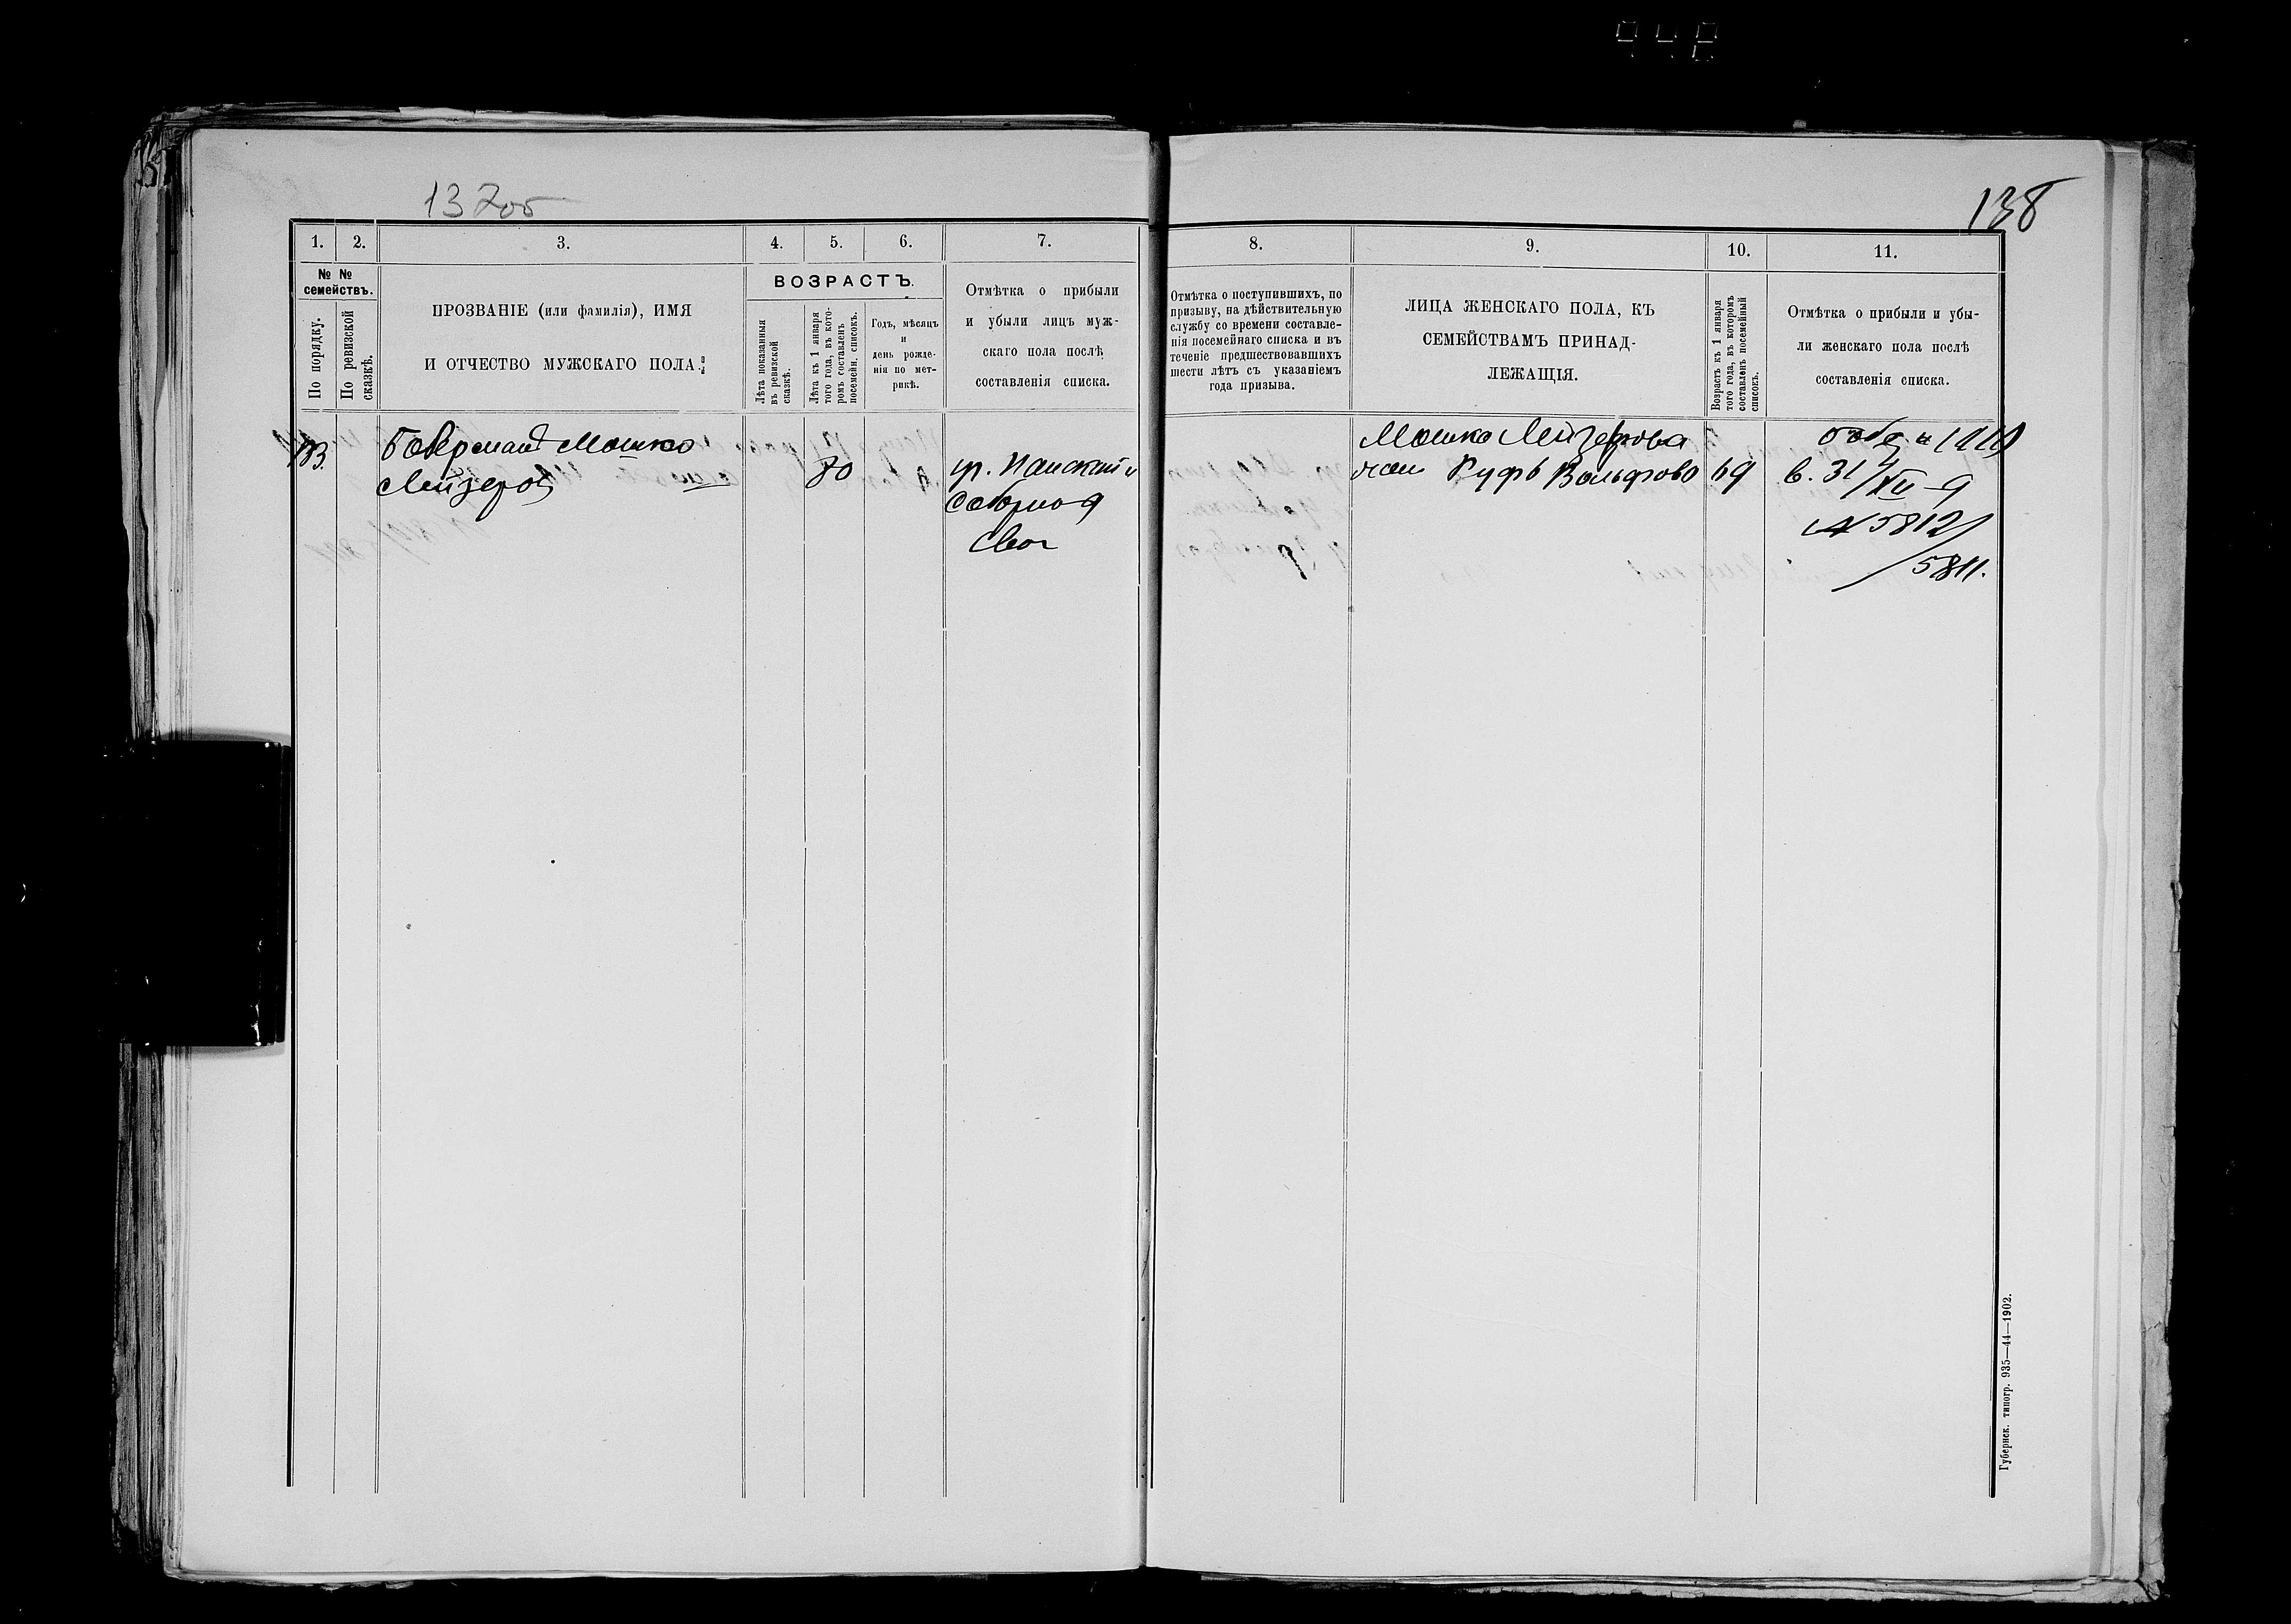 137об
138
1. 2. 3. 4. 5. 6. 7.
№ № семействъ.
По порядку.
По ревизской сказкѣ.
ПРОЗВАНІЕ (или фамилія), ИМЯ
И ОТЧЕСТВО МУЖСКАГО ПОЛА.
ВОЗРАСТЪ.
Лѣта показанныя
въ ревизской
сказкѣ.
Лѣта къ 1 января
того года, въ кото-
ромъ составленъ
посемейн. списокъ.
Годъ, мѣсяцъ
и
день рожде-
нія по мет-
рикѣ.
Отмѣтка о прибыли
и убыли лицъ муж-
скаго пола послѣ
составленія списка.
133.
Боверман Мошко
Лейзеров
70
8. 9. 10. 11.
Отмѣтка о поступившихъ, по
призыву, на дѣйствительную
службу со времени составле-
нія посемейнаго списка и въ
теченіе предшествовавшихъ
шести лѣтъ съ указаніемъ
года призыва.
ЛИЦА ЖЕНСКАГО ПОЛА, КЪ
СЕМЕЙСТВАМЪ ПРИНАД-
ЛЕЖАЩІЯ.
Возрастъ къ 1 января
того года, въ которомъ
составленъ посемейный
списокъ.
Отмѣтка о прибыли и убы-
ли женскаго пола послѣ
составленія списка.
Мошко Лейзерова
жен Руфь Вольфова 69
в. 31/XII
№ 5812/
5811.
Губернск. типогр. 935—44—1902.